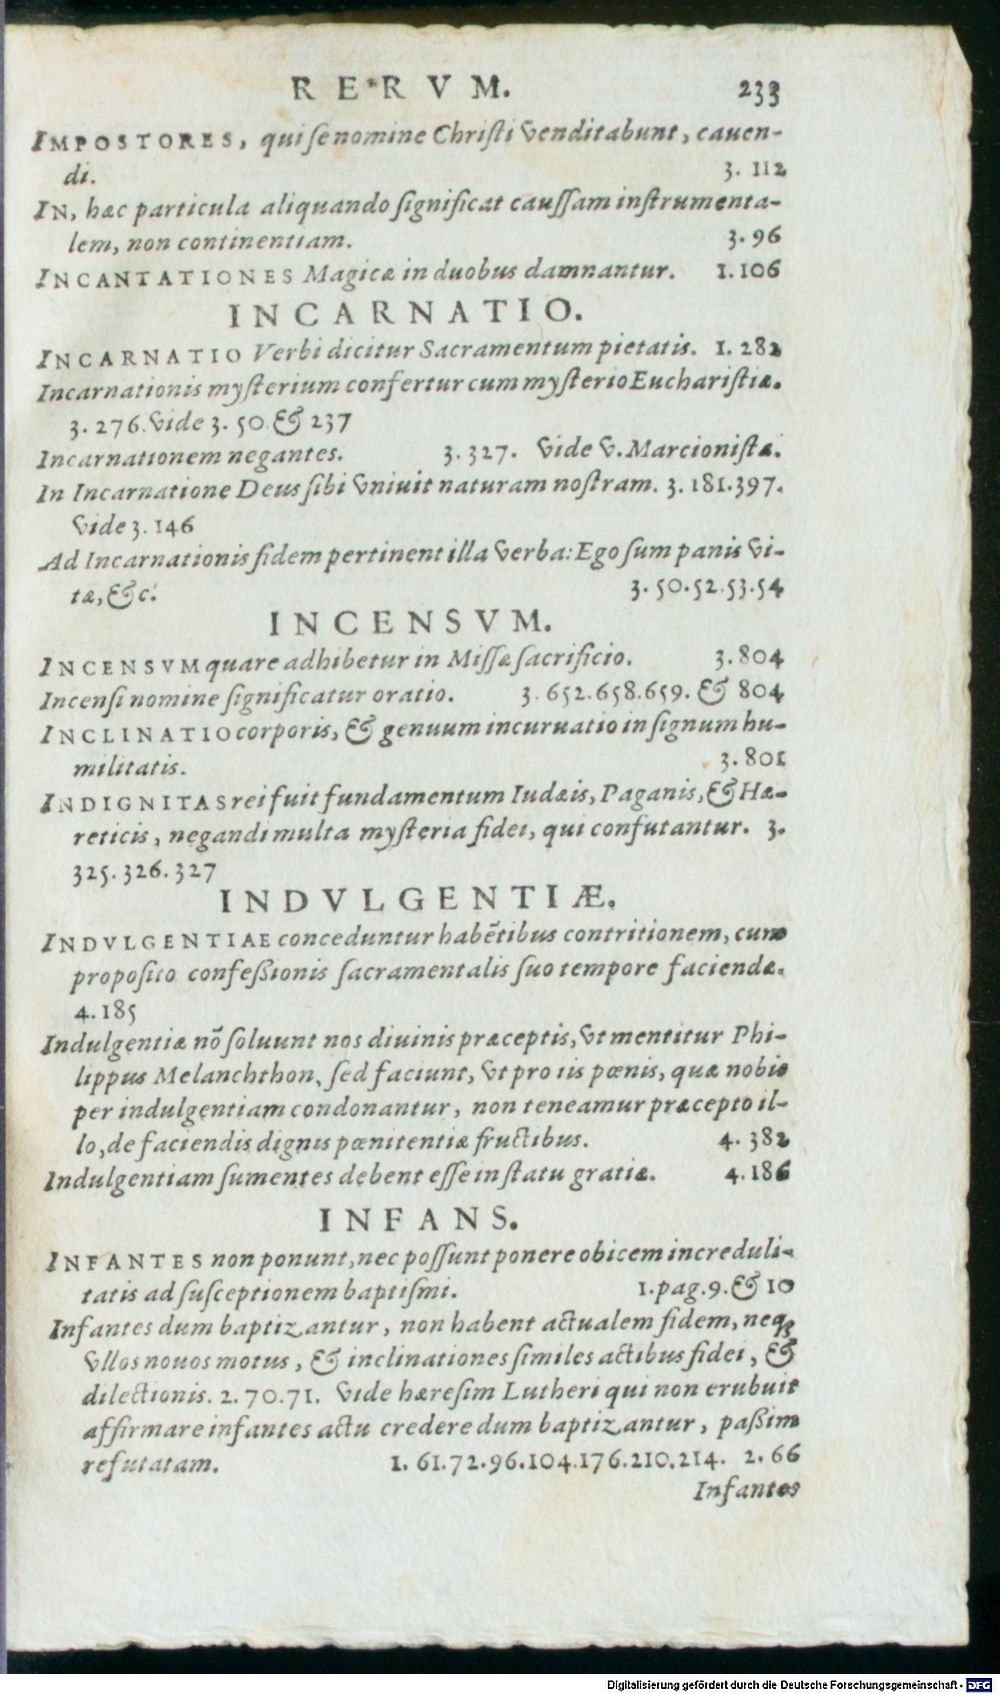 RERVM. 233
IMPOSTORES, qui se nomine Christi venditabunt, cauen-
di. 3. 112
IN, hæc particula aliquando significat caussam instrumenta-
lem, non continentiam. 3. 96
INCANTATIONES Magicæ in duobus damnantur. 1. 106
INCARNATIO.
INCARNATIO Verbi dicitur Sacramentum pietatis. 1. 282
Incarnationis mysterium confertur cum mysterio Eucharistiæ.
3. 276. vide 3. 50 & 237
Incarnationem negantes. 3. 327. Vide V. Marcionistæ.
In Incarnatione Deus sibi vniuit naturam nostram. 3. 181. 397.
vide 3. 146
Ad Incarnationis fidem pertinent illa verba: Ego sum panis vi-
tæ, &c. 3. 50. 52. 53. 54
INCENSVM.
INCENSVM quare adhibetur in Missæ sacrificio. 3. 804
Incensi nomine significatur oratio. 3. 652. 658. 659. & 804
INCLINATIO corporis, & genuum incuruatio in signum hu-
militatis. 3. 801
INDIGNITAS rei fuit fundamentum Iudæis, Paganis, & Hæ-
reticis, negandi multa mysteria fidei, qui confutantur. 3.
325. 326. 327
INDVLGENTIÆ.
INDVLGENTIAE conceduntur habẽtibus contritionem, cum
proposito confeßionis sacramentalis suo tempore faciendæ.
4. 185
Indulgentiæ nõ soluunt nos diuinis præceptis, vt mentitur Phi-
lippus Melanchthon, sed faciunt, vt pro iis pœnis, quæ nobis
per indulgentiam condonantur, non teneamur præcepto il-
lo, de faciendis dignis pœnitentiæ fructibus. 4. 382
Indulgentiam sumentes debent esse in statu gratiæ. 4. 186
INFANS.
INFANTES non ponunt, nec possunt ponere obicem increduli-
tatis ad susceptionem baptismi. 1. pag. 9. & 10
Infantes dum baptizantur, non habent actualem fidem, neq;
vllos nouos motus, & inclinationes similes actibus fidei, &
dilectionis. 2. 70. 71. Vide hæresim Lutheri qui non erubuit
affirmare infantes actu credere dum baptizantur, paßim
refutatam. 1. 61. 72. 96. 104. 176. 210. 214. 2. 66
Infantes
Digitalisierung gefördert durch die Deutsche Forschungsgemeinschaft - DFG